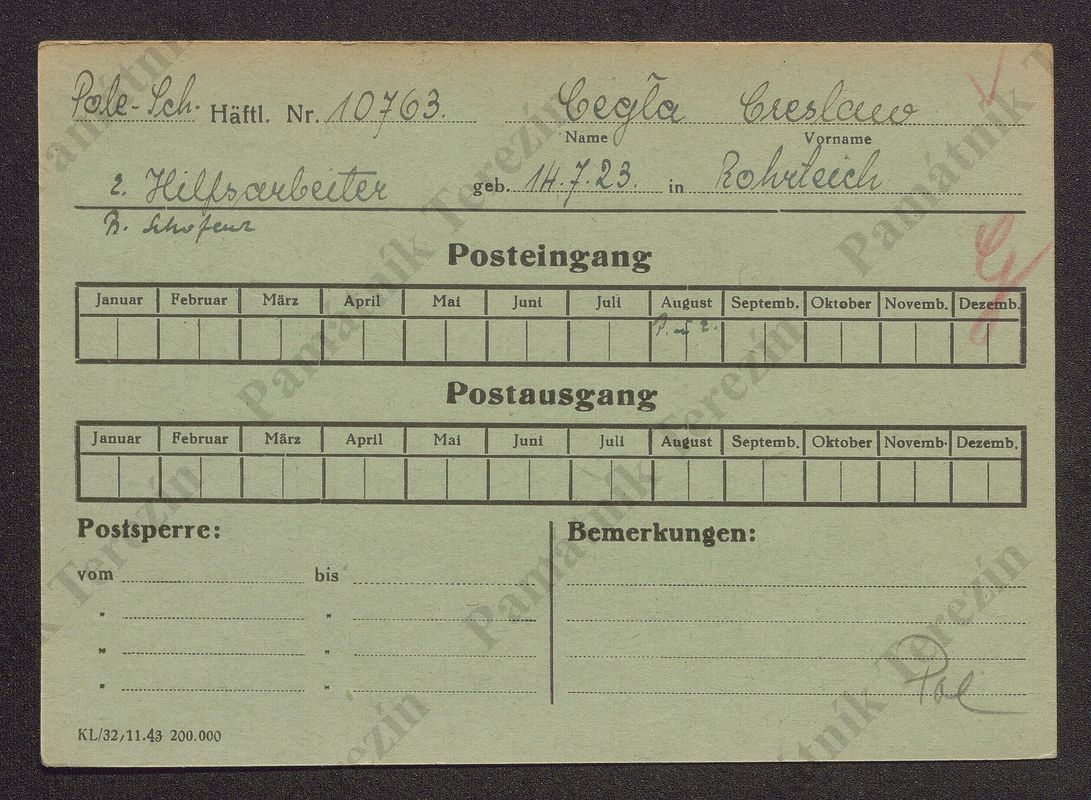 Pole-Sch. Häftl. Nr. 10763. Cegła Creslaw
Name Vorname
Hilfsarbeiter geb. 14.7.23. in Rohrteich
Posteingang
Januar Februar März April Mai Juni Juli August Septemb. Oktober Novemb. Dezemb.
Postausgang
Januar Februar März April Mai Juni Juli August Septemb. Oktober Novemb. Dezemb.
Postsperre: Bemerkungen:
vom bis
" "
" "
" "
Pol
KL/32, 11.43 200.000
Památník Terezín